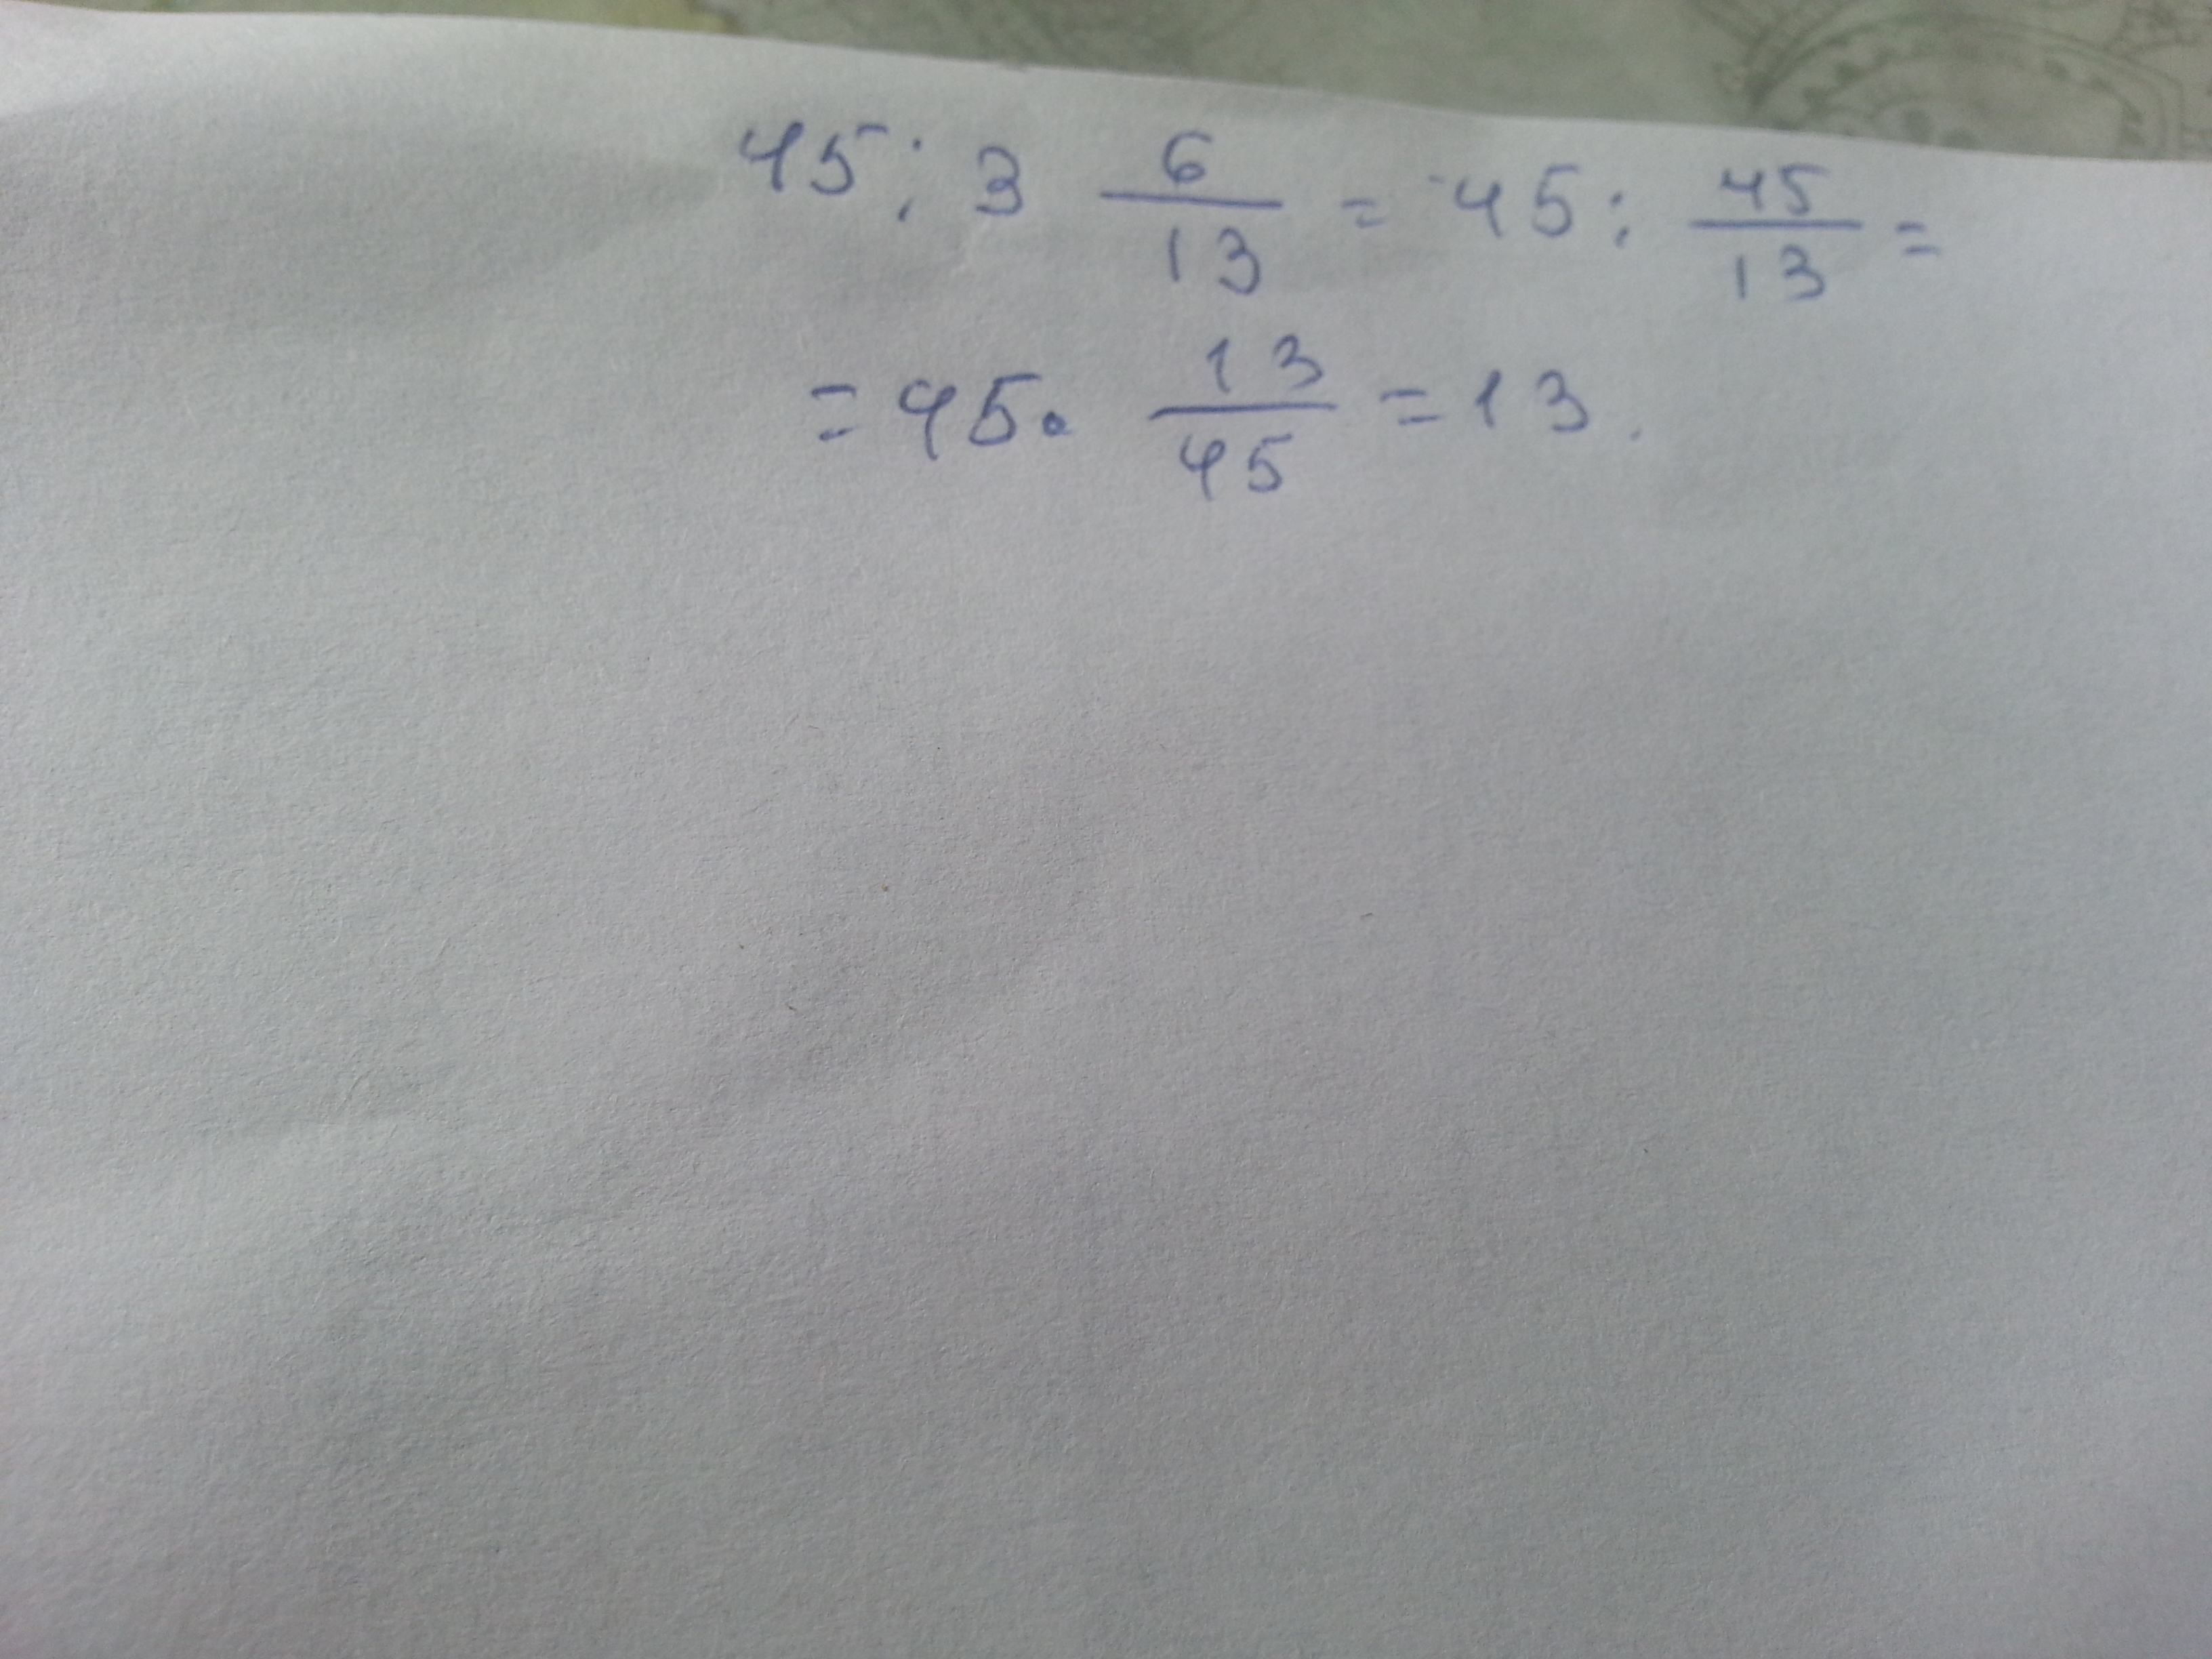 45 : 3 6/13 = 45 : 45/13 =
= 45 · 13/45 = 13.